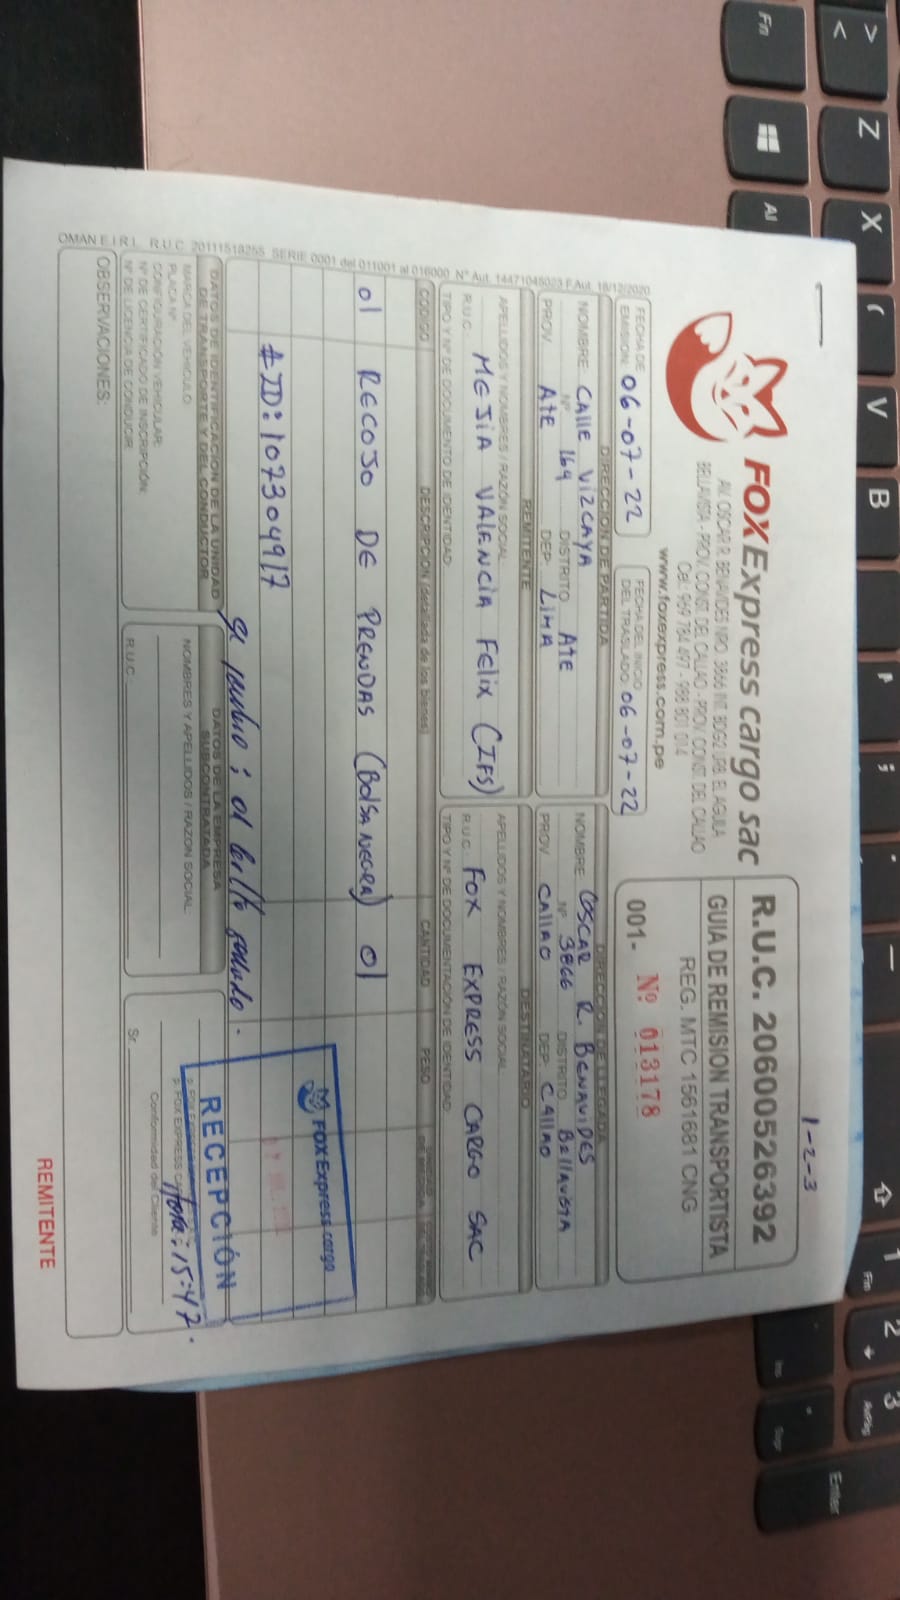 1-2-3
FOXExpress cargo sac
AV. OSCAR R. BENAVIDES NRO. 3866 INT. BDG2 URB. EL AGUILA
BELLAVISTA - PROV. CONST. DEL CALLAO - PROV. CONST. DEL CALLAO
Cel: 967 784 497 - 988 801 014
www.foxexpress.com.pe
R.U.C. 20600526392
GUIA DE REMISION TRANSPORTISTA
REG. MTC 1561681 CNG
001- Nº 013178
FECHA DE EMISIÓN: 06-07-22
FECHA DEL INICIO DEL TRASLADO 06-07-22
DIRECCION DE PARTIDA
NOMBRE: CALLE VIZCAYA
Nº 164 DISTRITO Ate
PROV. Ate DEP. LIMA
DIRECCION DE LLEGADA
NOMBRE OSCAR R. BENAVIDES
Nº 3866 DISTRITO BELLAVISTA
PROV CALLAO DEP. CALLAO
REMITENTE
APELLIDOS Y NOMBRES / RAZÓN SOCIAL:
MEJIA VALENCIA FELIX (IFS)
R.U.C.
TIPO Y Nº DE DOCUMENTO DE IDENTIDAD:
DESTINATARIO
APELLIDOS Y NOMBRES / RAZÓN SOCIAL
FOX EXPRESS CARGO SAC
R.U.C.
TIPO Y Nº DE DOCUMENTACIÓN DE IDENTIDAD:
CODIGO DESCRIPCION (detallada de los bienes) CANTIDAD PESO
01 RECOJO DE PRENDAS (BOLSA NEGRA) 01
#ID: 107304917
FOXExpress cargo
RECEPCIÓN
Hora: 15:47.
DATOS DE IDENTIFICACION DE LA UNIDAD DE TRANSPORTE Y DEL CONDUCTOR
MARCA DEL VEHICULO:
PLACA Nº
CONFIGURACIÓN VEHICULAR:
Nº DE CERTIFICADO DE INSCRIPCIÓN:
Nº DE LICENCIA DE CONDUCIR
DATOS DE LA EMPRESA SUBCONTRATADA
NOMBRES Y APELLIDOS / RAZON SOCIAL:
R.U.C.
Sr.
Conformidad del Cliente
OBSERVACIONES:
REMITENTE
OMAN E.I.R.L. R.U.C. 20111518255 SERIE 0001 del 011001 al 016000 Nº Aut. 14471045023 F.Aut. 18/12/2020
Fn
Z
X
V
B
Enter